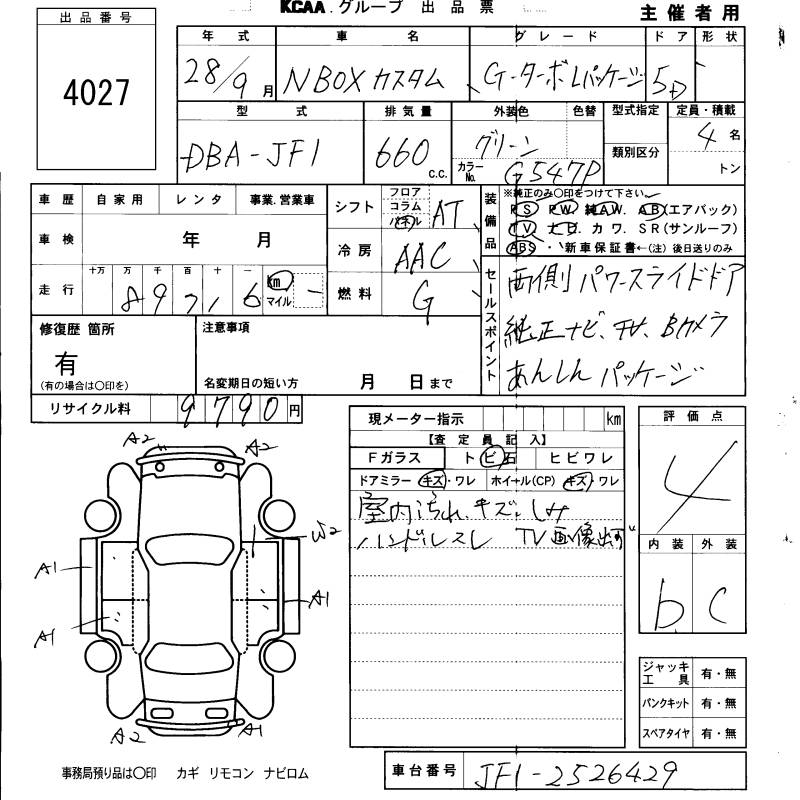 KCAA.グループ 出品票 主催者用
出品番号
4027
年式 車名 グレード ドア 形状
28/9月 NBOX カスタム G・ターボLパッケージ 5D
型式 排気量 外装色 色替 型式指定 定員・積載
DBA-JF1 660 C.C. グリーン 類別区分 4名
カラーNo. G547P トン
車歴 自家用 レンタ 事業.営業車
シフト フロア コラム パネル AT
車検 年 月
冷房 AAC
走行 十万 万 千 百 十 一 km マイル
89716
燃料 G
装備品 ※純正のみ○印をつけて下さい
PS PW 純AW. AB(エアバック)
TV. ナビ. カワ. SR(サンルーフ)
ABS ・ 新車保証書←(注) 後日送りのみ
セールスポイント 両側パワースライドドア
純正ナビ、TV、Bカメラ
あんしんパッケージ
修復歴 箇所 注意事項
有
(有の場合は○印を) 名変期日の短い方 月 日まで
リサイクル料 9790円
現メーター指示 km
【査定員記入】
Fガラス トビ石 ヒビワレ
ドアミラー キズ・ワレ ホイール(CP) キズ・ワレ
室内汚れ、キズ、しみ
ハンドルスレ TV画像
評価点
4
内装 外装
b C
A2 A2
W2
A1 A1
A1
A2 A1
ジャッキ工具 有・無
パンクキット 有・無
スペアタイヤ 有・無
事務局預り品は○印 カギ リモコン ナビロム
車台番号 JF1-2526429